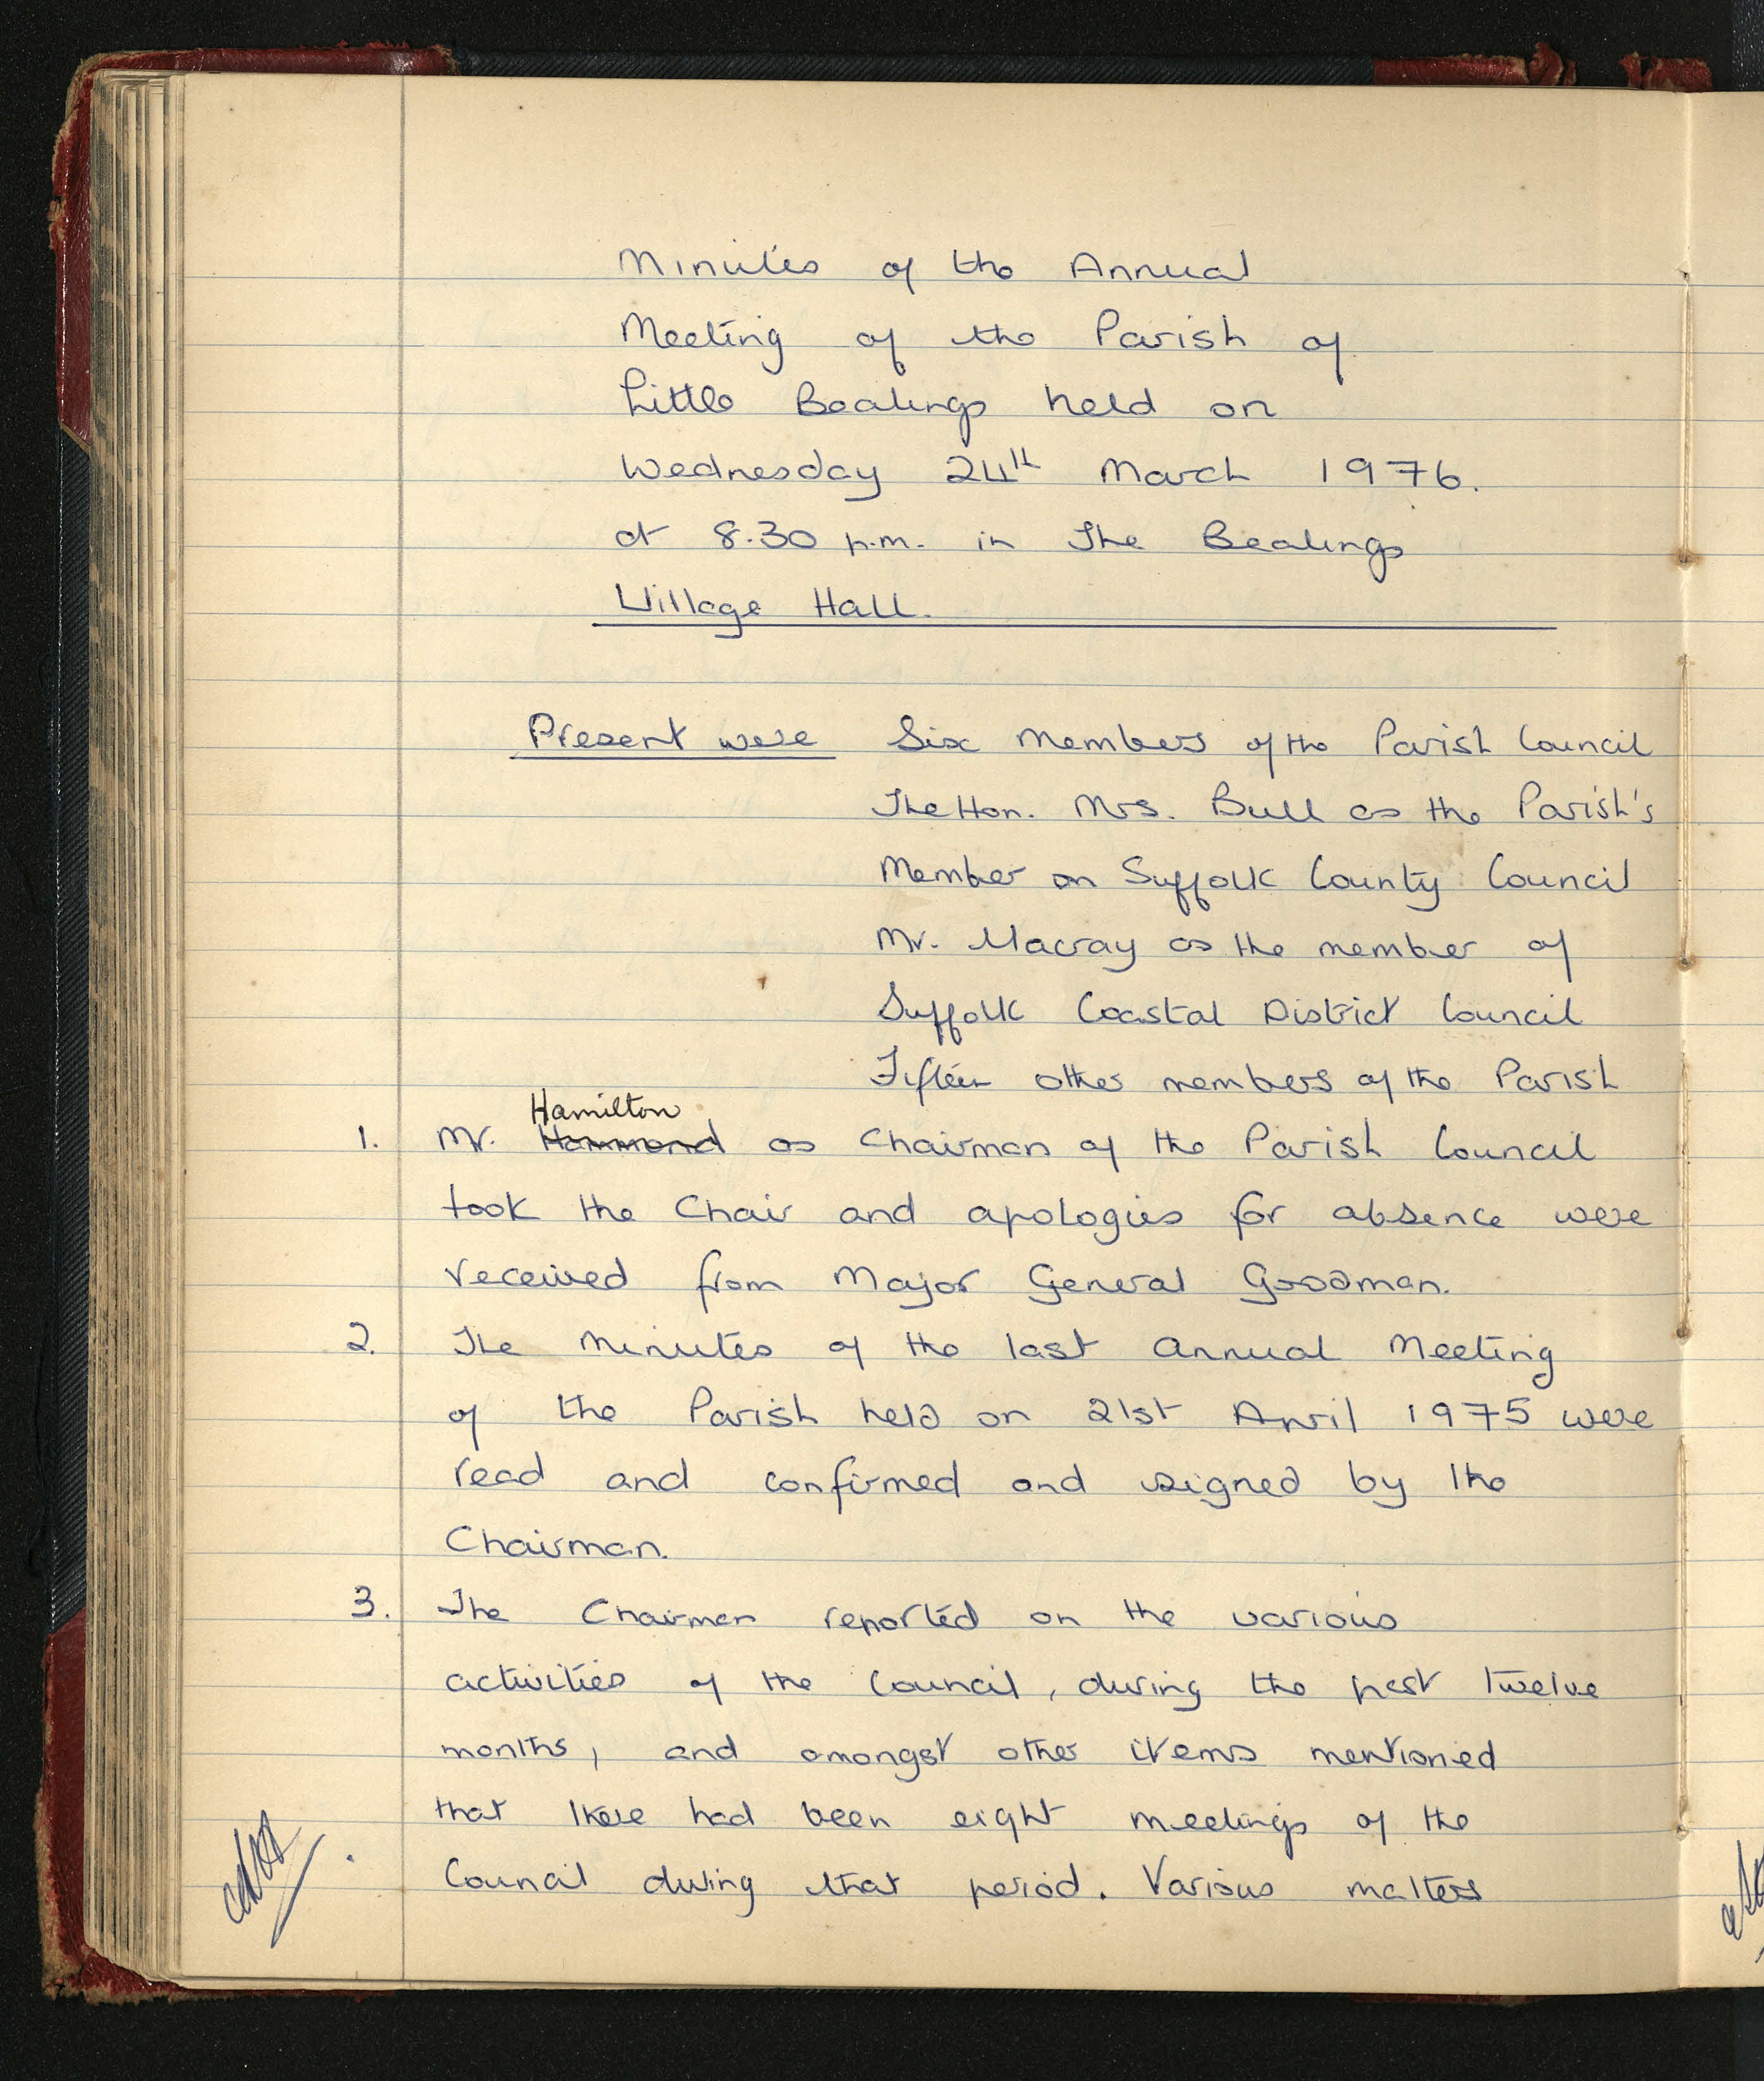 Minutes of the Annual
Meeting of the Parish of
Little Bealings held on
Wednesday 24th March 1976.
at 8.30 p.m. in The Bealings
Village Hall.
Present were Six Members of the Parish Council
The Hon. Mrs. Bull as the Parish's
Member on Suffolk County Council
Mr. Macray as the member of
Suffolk Coastal District Council
Fifteen other members of the Parish
Hamilton
1. Mr. Hammond as Chairman of the Parish Council
took the Chair and apologies for absence were
received from Major General Goodman.
2. The Minutes of the last Annual Meeting
of the Parish held on 21st April 1975 were
read and confirmed and signed by the
Chairman.
3. The Chairman reported on the various
activities of the Council, during the past twelve
months, and amongst other items mentioned
that there had been eight meetings of the
Council during that period. Various matters